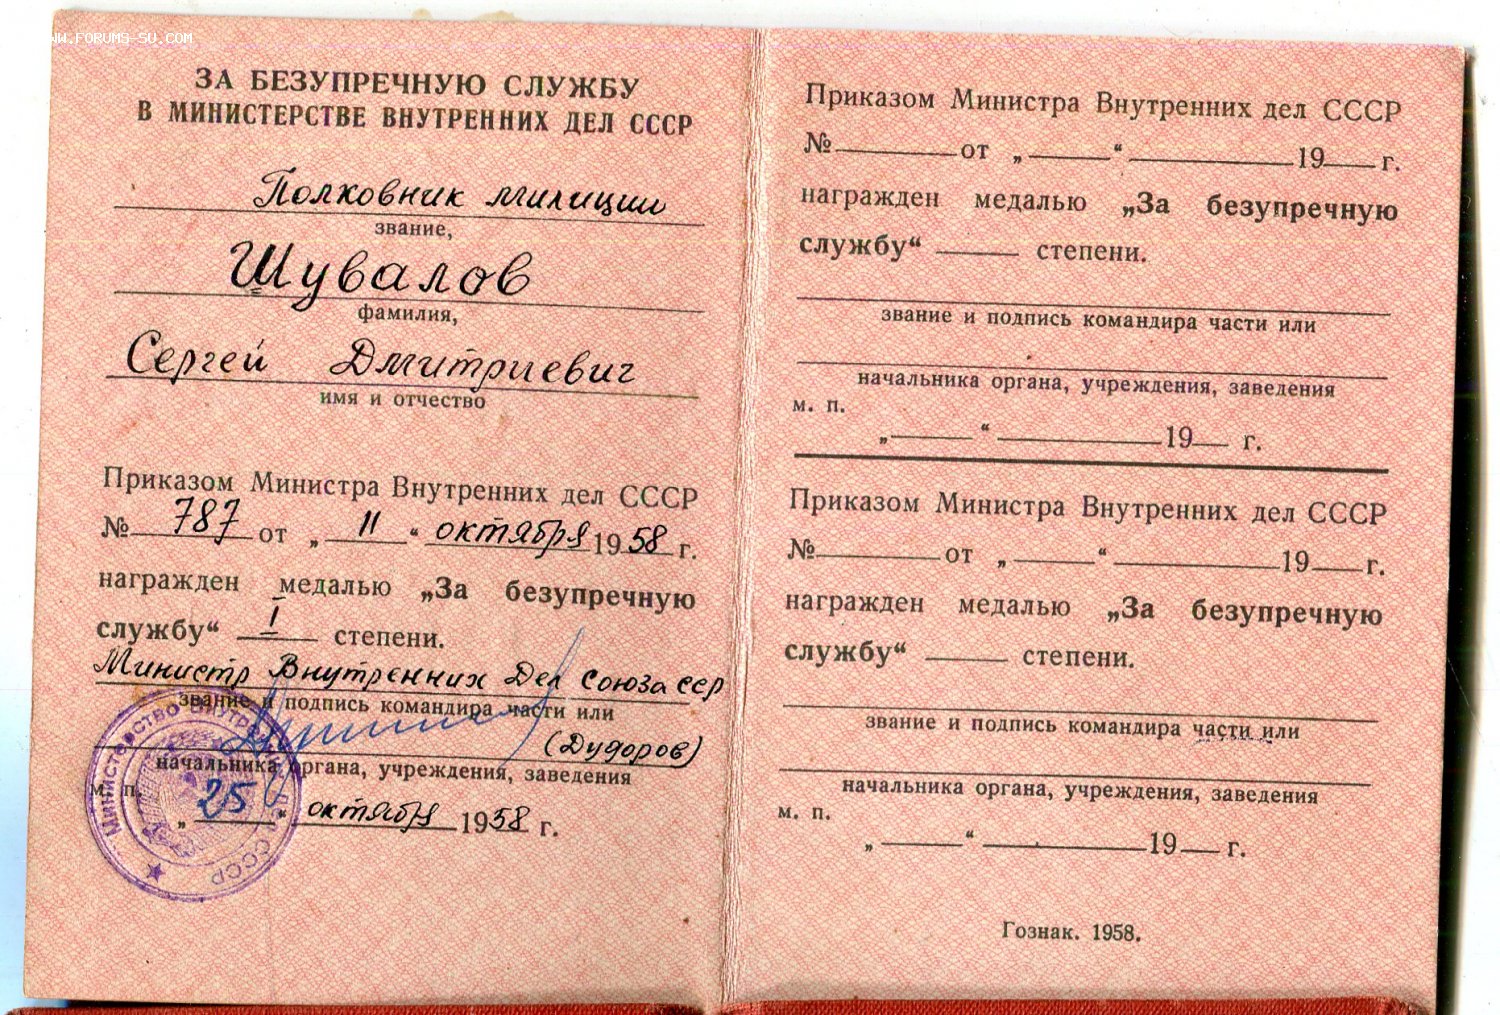 WW.FORUMS-SU.COM
ЗА БЕЗУПРЕЧНУЮ СЛУЖБУ
В МИНИСТЕРСТВЕ ВНУТРЕННИХ ДЕЛ СССР
Полковник милиции
звание,
Шувалов
фамилия,
Сергей Дмитриевич
имя и отчество
Приказом Министра Внутренних дел СССР
№ 787 от „ 11 “ октября 1958 г.
награжден медалью „За безупречную
службу“ I степени.
Министр Внутренних Дел Союза ССР
звание и подпись командира части или
(Дудоров)
начальника органа, учреждения, заведения
м. п.
„ 25 “ октября 1958 г.
МИНИСТЕРСТВО ВНУТРЕННИХ ДЕЛ СССР
Приказом Министра Внутренних дел СССР
№ от „ “ 19 г.
награжден медалью „За безупречную
службу“ степени.
звание и подпись командира части или
начальника органа, учреждения, заведения
м. п.
„ “ 19 г.
Приказом Министра Внутренних дел СССР
№ от „ “ 19 г.
награжден медалью „За безупречную
службу“ степени.
звание и подпись командира части или
начальника органа, учреждения, заведения
м. п.
„ “ 19 г.
Гознак. 1958.